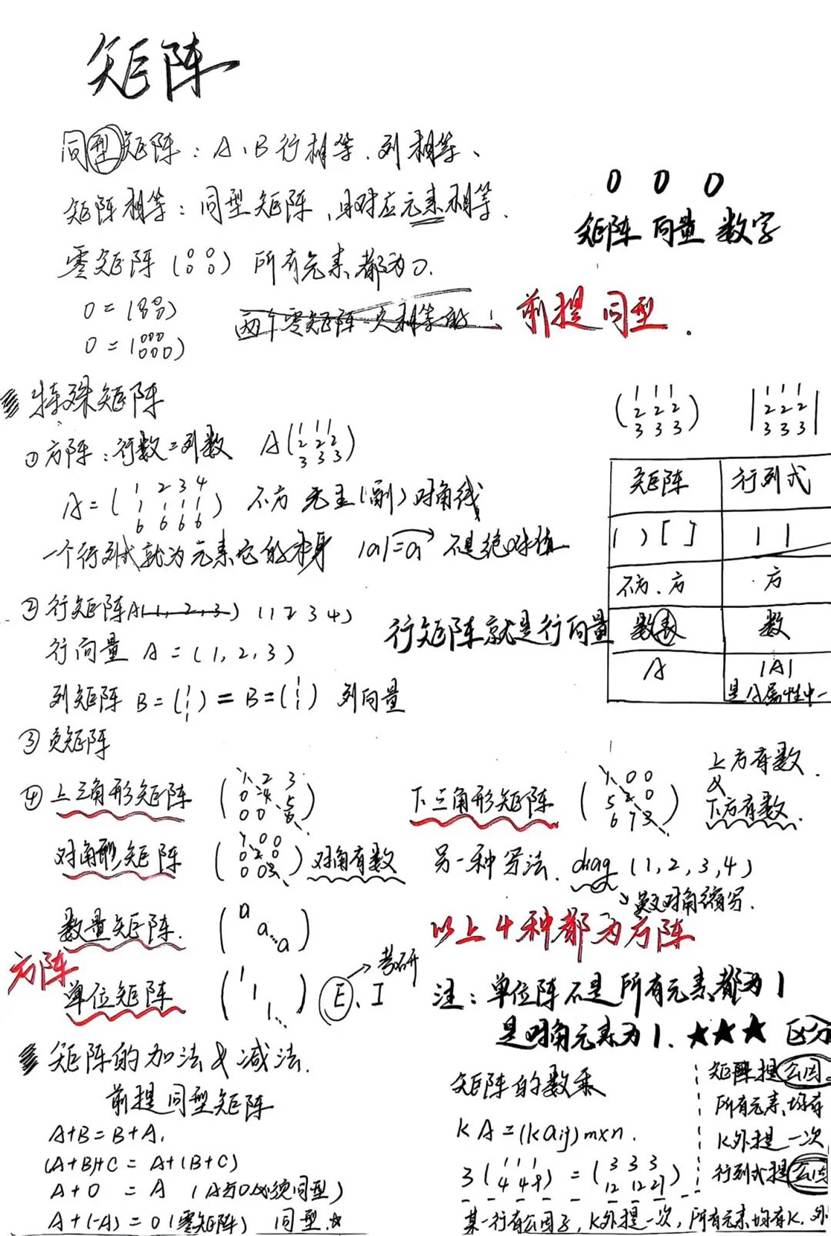 矩阵
同型矩阵：A、B行相等，列相等、
矩阵相等：同型矩阵，且对应元素相等．
0 0 0
矩阵 向量 数字
零矩阵 (0 0 0 0) 所有元素都为0．
0 = (0 0 0 0)
0 = (0 0 0 0 0 0)
两个零矩阵一定相等的！ 前提同型．
特殊矩阵
①方阵：行数=列数 A(1 1 1 2 2 2 3 3 3)
A = (1 2 3 4 1 1 1 1 6 6 6 6) 不方 无主(副)对角线
一个行列式就为元素它的本身 |a|=a 不是绝对值
(1 1 1 2 2 2 3 3 3) |1 1 1 2 2 2 3 3 3|
矩阵 行列式
( ) [ ] | |
不方．方 方
数表 数
A |A|
是A属性中一
②行矩阵A(1, 2, 3) (1 2 3 4)
行矩阵就是行向量
行向量 A = (1, 2, 3)
列矩阵 B = (1 1 1) = B = (1 1 1) 列向量
③负矩阵
④上三角形矩阵 (1 2 3 0 4 5 0 0 6)
下三角形矩阵 (1 0 0 5 2 0 6 7 3)
上方有数．
下方有数．
对角形矩阵 (1 0 0 0 2 0 0 0 3) 对角有数
另一种写法．diag (1, 2, 3, 4)
英文对角缩写．
数量矩阵． (a a a)
以上4种都为方阵
方阵
单位矩阵 (1 1 1) E、I
考研
注：单位阵不是所有元素都为1
是对角元素为1．★★★ 区分
矩阵的加法&减法．
前提同型矩阵
A+B=B+A,
(A+B)+C = A+(B+C)
A+0 = A (A与0必须同型)
A+(-A) = 0 (零矩阵) 同型．
矩阵的数乘
kA = (kaij)m×n．
3 (1 1 1 4 4 9) = (3 3 3 12 12 27)
矩阵提公因
所有元素均有
K外提一次
行列式提公因
某一行有公因子，K外提一次，所有元素均有K．外